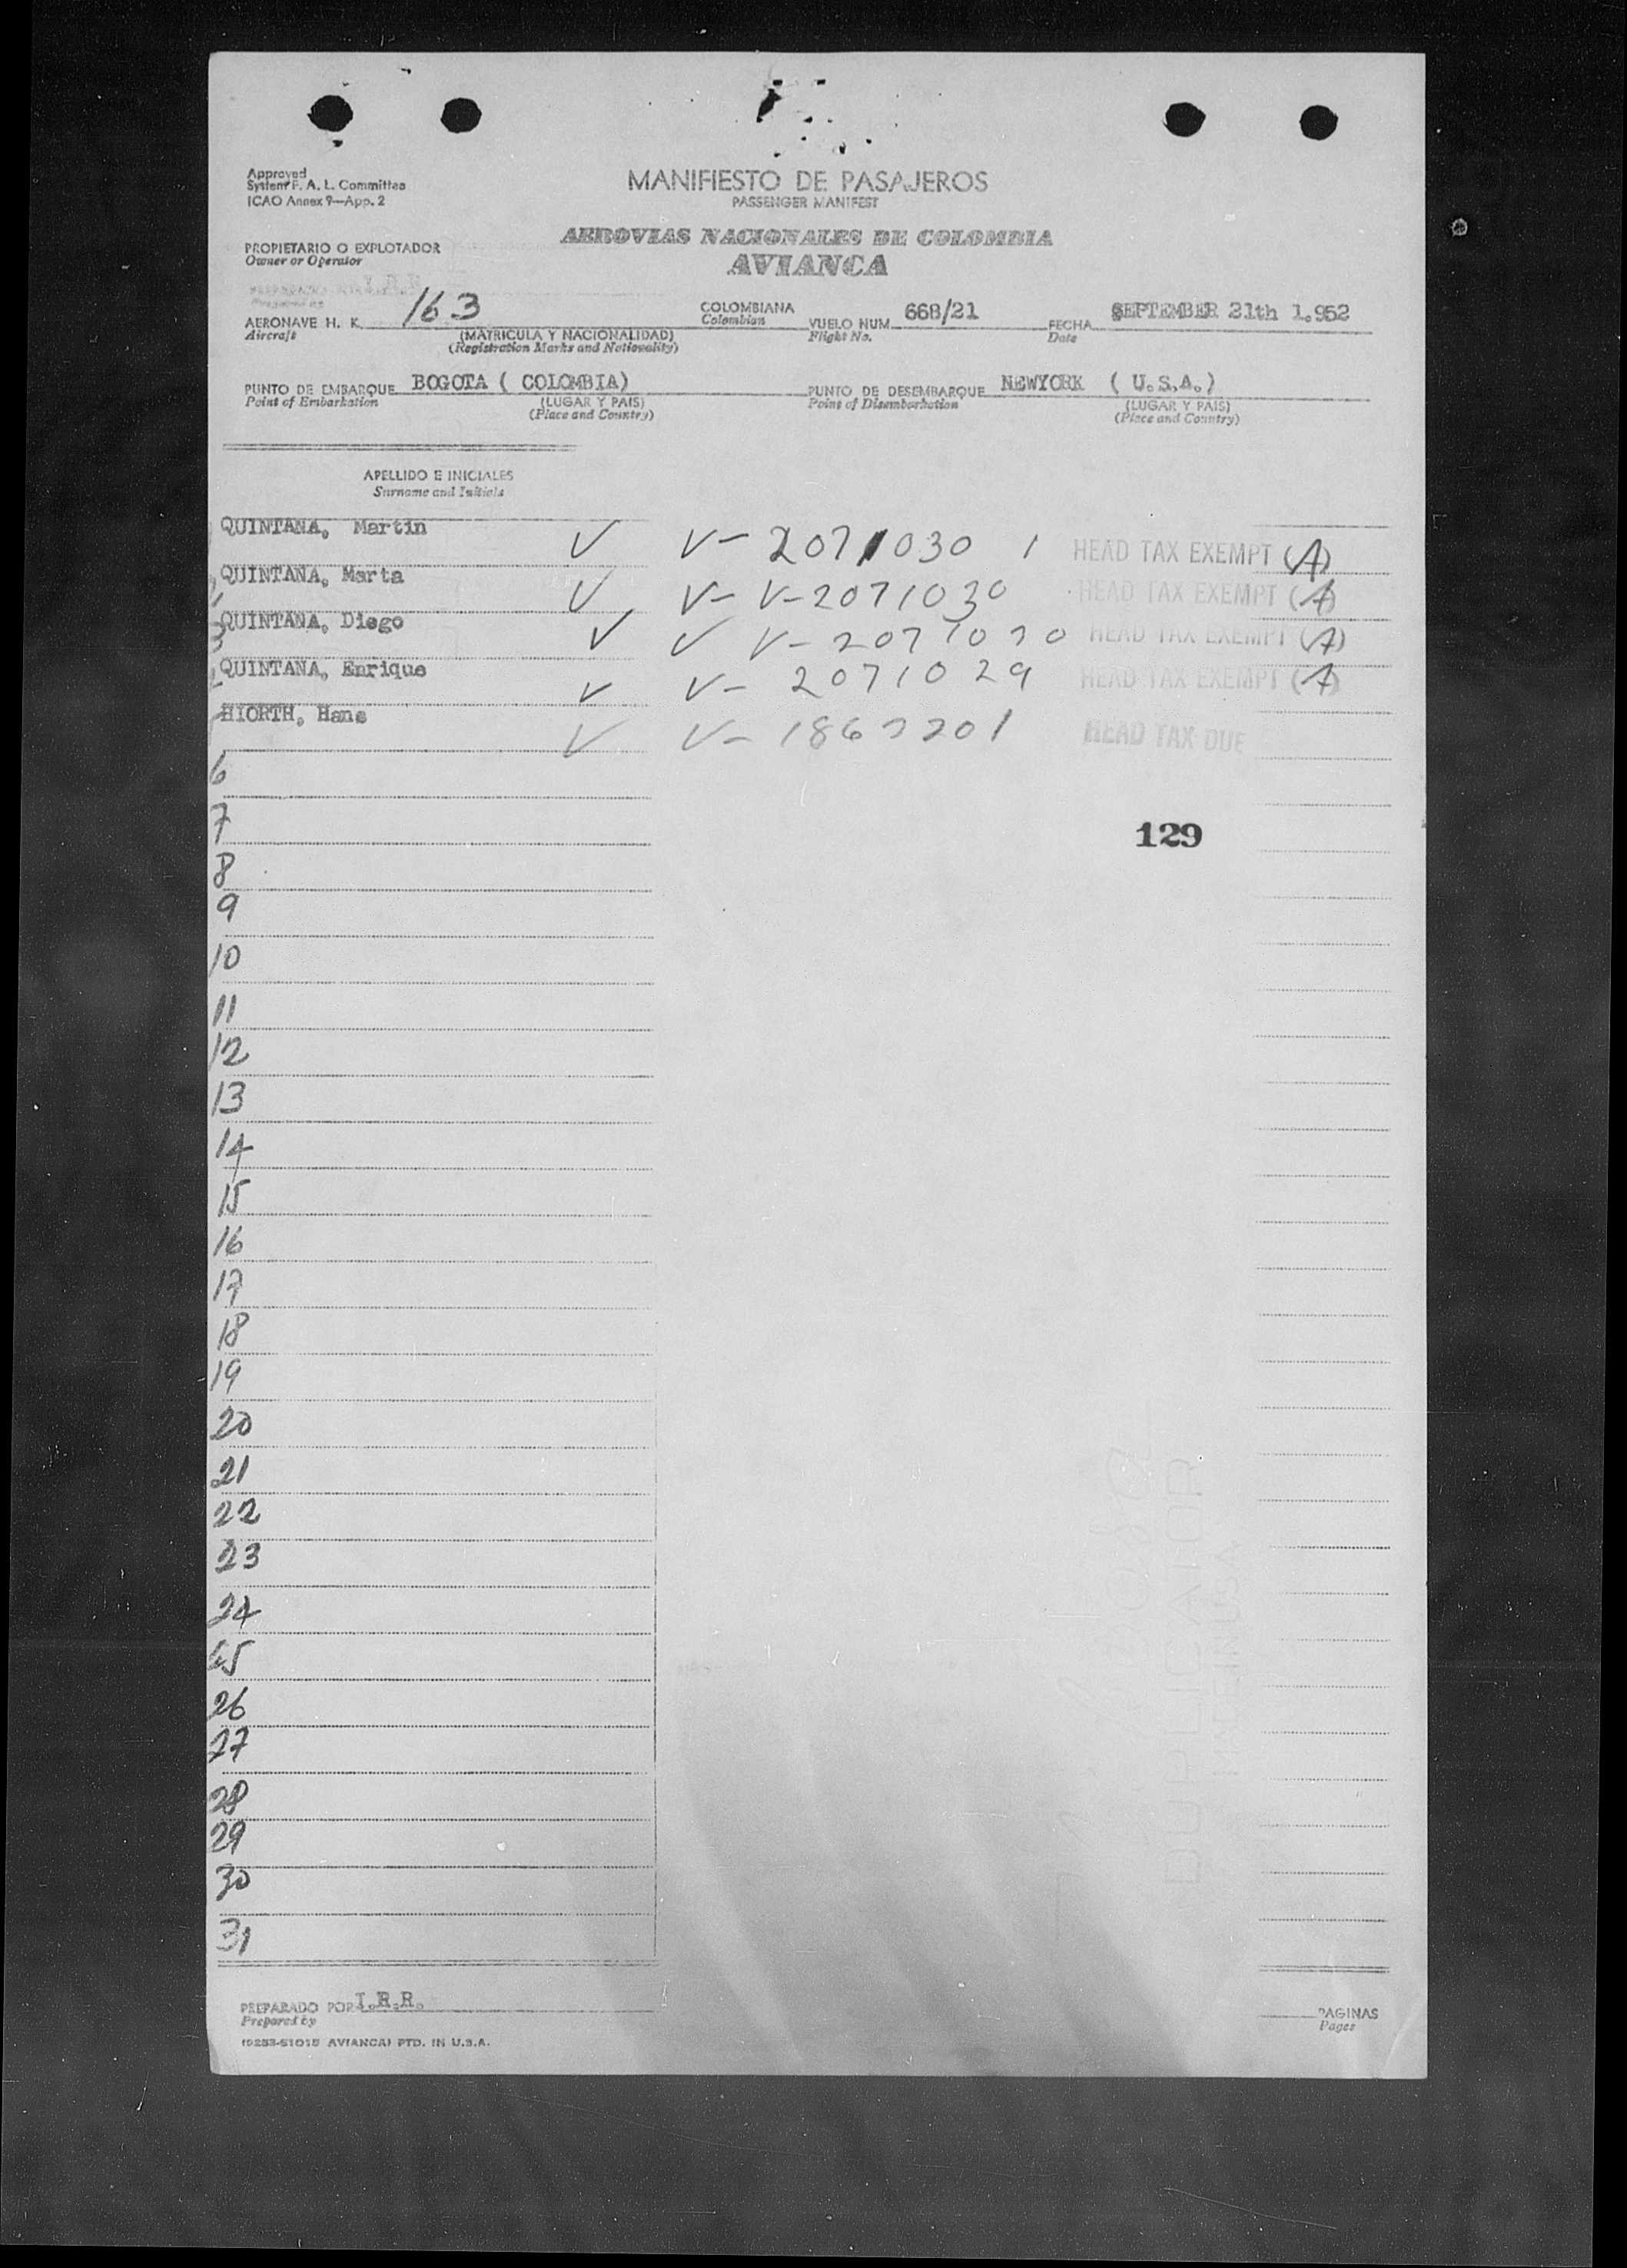 Approved
System F. A. L. Committee
ICAO Annex 9—App. 2
MANIFIESTO DE PASAJEROS
PASSENGER MANIFEST
PROPIETARIO O EXPLOTADOR
Owner or Operator
AEROVIAS NACIONALES DE COLOMBIA
AVIANCA
AERONAVE H. K. 163 COLOMBIANA VUELO NUM 668/21 FECHA SEPTEMBER 21th 1.952
Aircraft (MATRICULA Y NACIONALIDAD) Colombian Flight No. Date
(Registration Marks and Nationality)
PUNTO DE EMBARQUE BOGOTA ( COLOMBIA) PUNTO DE DESEMBARQUE NEWYORK ( U.S.A.)
Point of Embarkation (LUGAR Y PAIS) Point of Disembarkation (LUGAR Y PAIS)
(Place and Country) (Place and Country)
APELLIDO E INICIALES
Surname and Initials
QUINTANA, Martin V V- 2071030 1 HEAD TAX EXEMPT (A)
QUINTANA, Marta V V- V-2071030 HEAD TAX EXEMPT (A)
3 QUINTANA, Diego V V V- 2071030 HEAD TAX EXEMPT (A)
QUINTANA, Enrique V V- 2071029 HEAD TAX EXEMPT (A)
HIORTH, Hans V V- HEAD TAX DUE
6
7
129
8
9
10
11
12
13
14
15
16
17
18
19
20
21
22
23
24
25
26
27
28
29
30
31
PREPARADO POR I.R.R.
Prepared by
PAGINAS
Pages
AVIANCA) PTD. IN U.S.A.